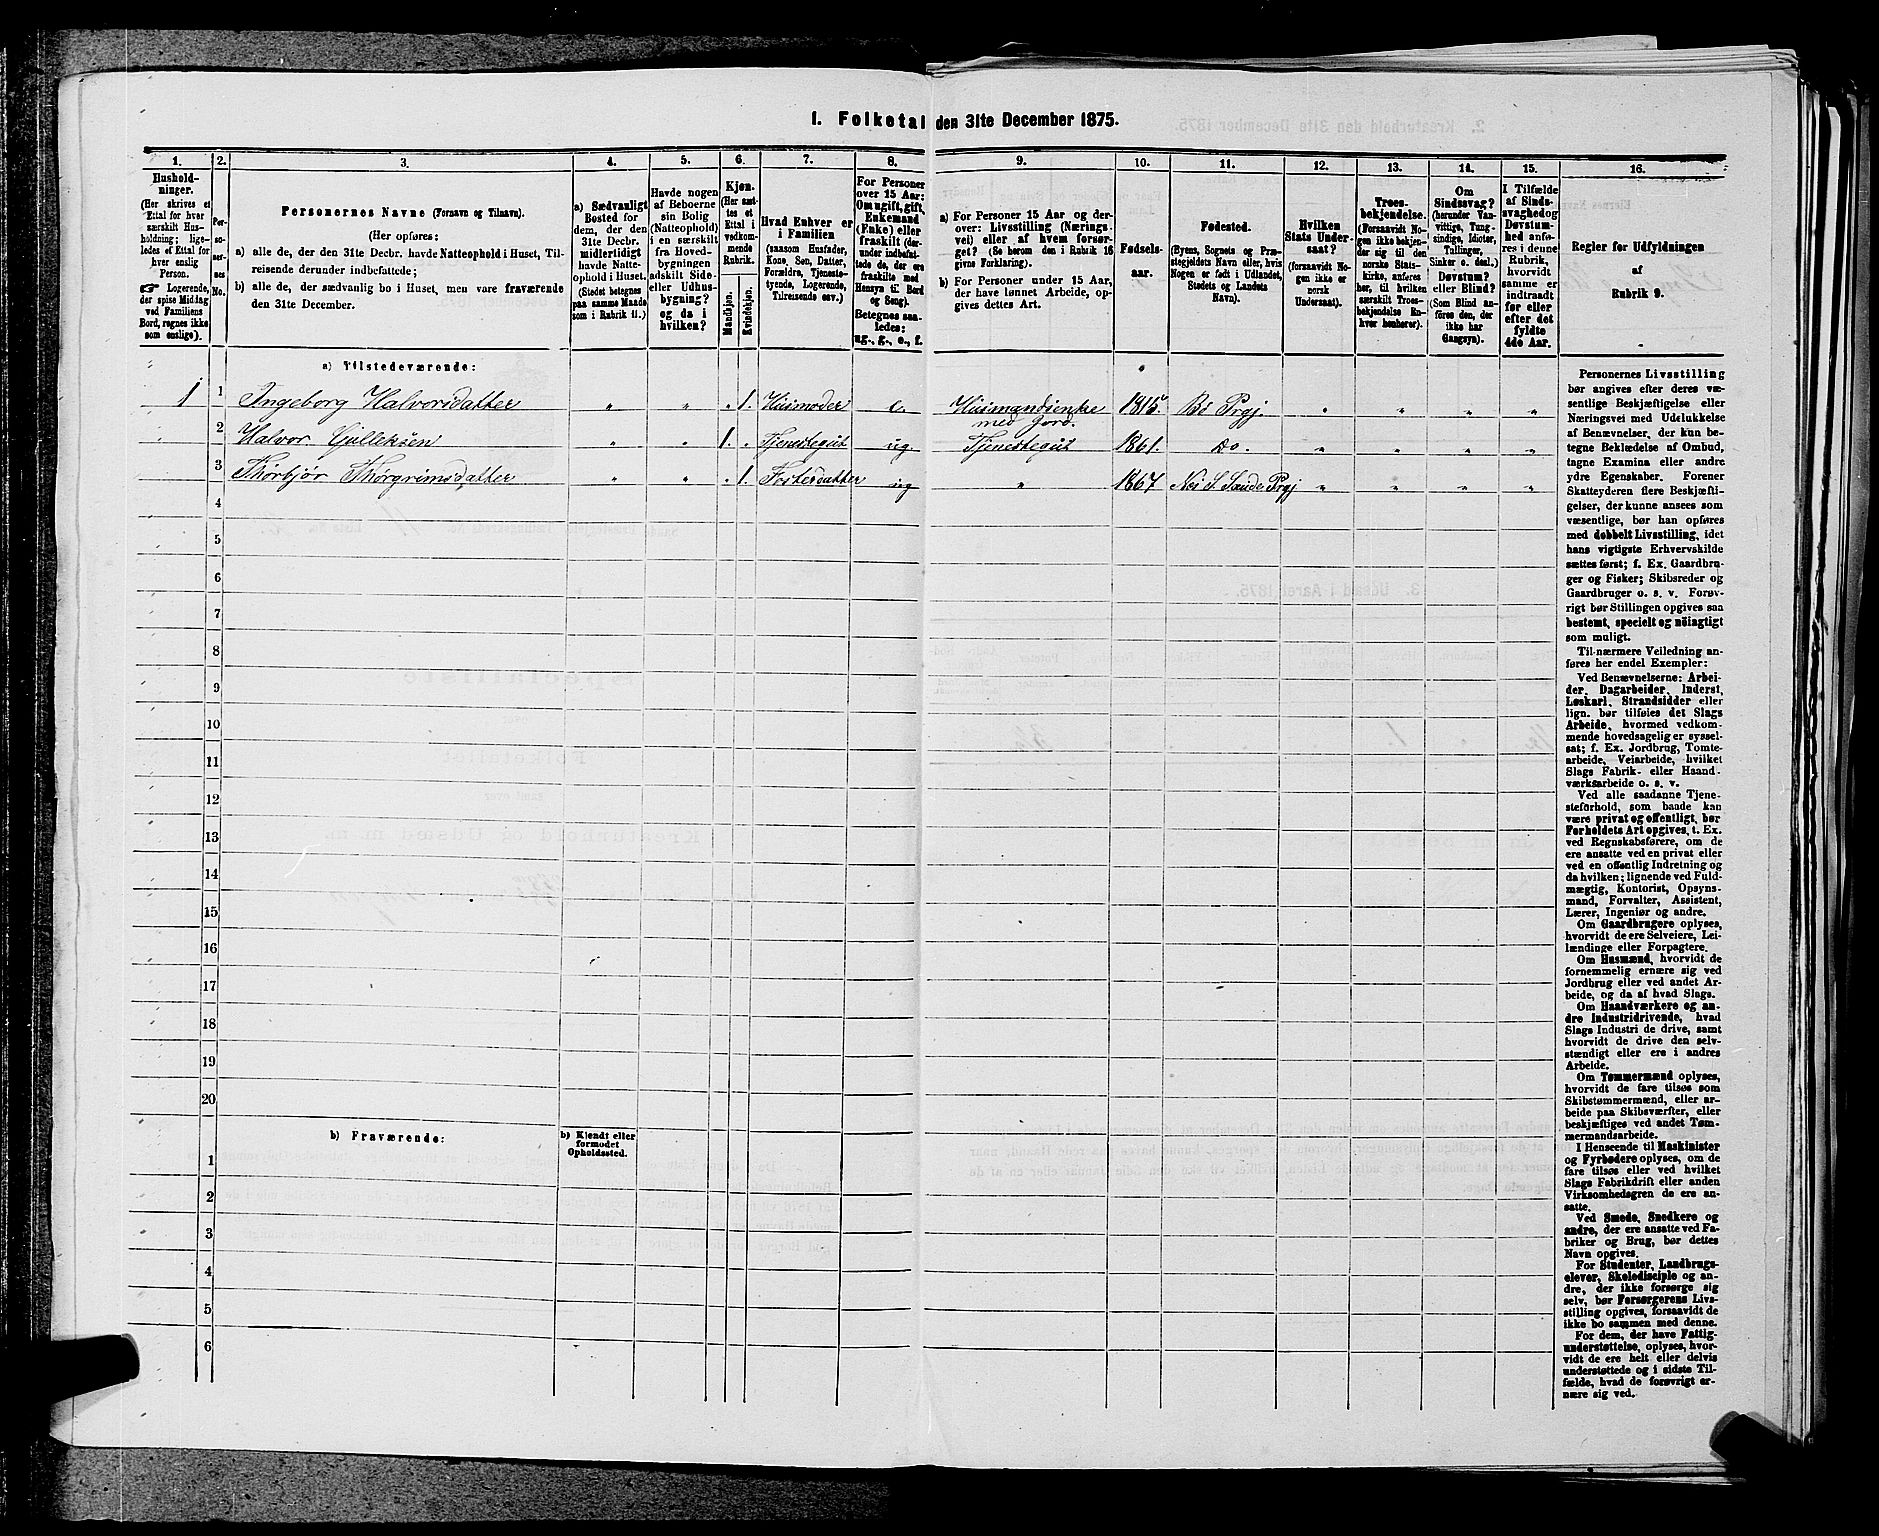 I. Folketal den 31te December 1875.
1. 2. 3. 4. 5. 6. 7. 8. 9. 10. 11. 12. 13. 14. 15. 16.
Hushold-
ninger.
(Her skrives et
Ettal for hver
særskilt Hus-
holdning; lige-
ledes et Ettal for
hver enslig
Person.
☛ Logerende,
der spise Middag
ved Familiens
Bord, regnes ikke
som enslige).
Per-
so-
ner-
nes
No.
Personernes Navne (Fornavn og Tilnavn).
(Her opføres:
a) alle de, der den 31te Decbr. havde Natteophold i Huset, Til-
reisende derunder indbefattede;
b) alle de, der sædvanlig bo i Huset, men vare fraværende
den 31te December.
a) Sædvanligt
Bosted for
dem, der den
31te Decbr.
midlertidigt
havde Natte-
ophold i Huset.
(Stedet betegnes
paa samme Maade
som i Rubrik 11.)
Havde nogen
af Beboerne
sin Bolig
(Natteophold)
i en særskilt
fra Hoved-
bygningen
adskilt Side-
eller Udhus-
bygning?
og da i
hvilken?
Kjøn.
(Her sæt-
tes et
Ettal i
vedkom-
mende
Rubrik.
Mandkjøn.
Kvindekjøn.
Hvad Enhver er
i Familien
(saasom Husfader,
Kone, Søn, Datter,
Forældre, Tjeneste-
tyende, Logerende,
Tilreisende osv.)
For Personer
over 15 Aar:
Om ugift, gift,
Enkemand
(Enke) eller
fraskilt (der-
under indbefat-
tede de, der ere
fraskilte med
Hensyn til Bord
og Seng).
Betegnes saa-
ledes:
ug., g., e., f.
a) For Personer 15 Aar og der-
over: Livsstilling (Nærings-
vei) eller af hvem forsør-
get? (Se herom den i Rubrik 16
givne Forklaring).
b) For Personer under 15 Aar,
der have lønnet Arbeide, op-
gives dettes Art.
Fødsels-
aar.
Fødested.
(Byens, Sognets og Præ-
stegjeldets Navn eller, hvis
Nogen er født i Udlandet,
Stedets og Landets
Navn).
Hvilken
Stats Under-
saat?
(forsaavidt No-
gen ikke er
norsk
Undersaat).
Troes-
bekjendelse.
(Forsaavidt No-
gen ikke bekjen-
der sig til den
norske Stats-
kirke, anføres
her, til hvilken
særskilt Troes-
bekjendelse En-
hver henhører).
Om
Sindssvag?
(herunder Van-
vittige, Tung-
sindige, Idioter,
Tullinger,
Sinker o. desl.)
Døvstum?
eller Blind?
(Som Blind an-
føres den, der
ikke har
Gangsyn).
I Tilfælde
af Sinds-
svaghed og
Døvstum-
hed anfø-
res i denne
Rubrik,
hvorvidt
samme er
indtraadt
før eller
efter det
fyldte
4de Aar.
Regler for Udfyldningen
af
Rubrik 9.
a) Tilstedeværende:
1 1 Ingeborg Halvorsdatter „ „ „ 1. Husmoder e. Husmandsenke 1815 Bø Prgj. „ „ „ „
med Jord.
2 Halvor Gulleksen „ „ 1. „ Tjenestegut ug. Tjenestegut 1861. Do. „ „ „ „
3 Thorbjør Thorgrimsdatter „ „ „ 1. Fosterdatter ug „ 1867 Nes S. Saude Prgj „ „ „ „
4
5
6
7
8
9
10
11
12
13
14
15
16
17
18
19
20
b) Fraværende:
b) Kjendt eller
formodet
Opholdssted.
1
2
3
4
5
6
Personernes Livsstilling
bør angives efter deres væ-
sentlige Beskjæftigelse eller
Næringsvei med Udelukkelse
af Benævnelser, der kun be-
tegne Beklædelse af Ombud,
tagne Examina eller andre
ydre Egenskaber. Forener
Skatteyderen flere Beskjæfti-
gelser, der kunne ansees som
væsentlige, bør han opføres
med dobbelt Livsstilling, idet
hans vigtigste Erhvervskilde
sættes først; f. Ex. Gaardbru-
ger og Fisker; Skibsreder og
Gaardbruger o. s. v. Forøv-
rigt bør Stillingen opgives saa
bestemt, specielt og nøiagtigt
som muligt.
Til nærmere Veiledning an-
føres her endel Exempler:
Ved Benævnelserne: Arbei-
der, Dagarbeider, Inderst,
Løskarl, Strandsidder eller
lign. bør tilføies det Slags
Arbeide, hvormed vedkom-
mende hovedsagelig er syssel-
sat; f. Ex. Jordbrug, Tomte-
arbeide, Veiarbeide, hvilket
Slags Fabrik- eller Haand-
værksarbeide o. s. v.
Ved alle saadanne Tjene-
steforhold, som baade kan
være privat og offentligt, bør
Forholdets Art opgives, t. Ex.
ved Regnskabsførere, om de
ere ansatte ved en privat eller
ved en offentlig Indretning og
da hvilken; lignende ved Fuld-
mægtig, Kontorist, Opsyns-
mand, Forvalter, Assistent,
Lærer, Ingeniør og andre.
Om Gaardbrugere oplyses,
hvorvidt de ere Selveiere, Lei-
lændinge eller Forpagtere.
Om Husmænd, hvorvidt de
fornemmelig ernære sig ved
Jordbrug eller ved andet Ar-
beide, og da af hvad Slags.
Om Haandværkere og an-
dre Industridrivende, hvad
Slags Industri de drive, samt
hvorvidt de drive den selv-
stændigt eller ere i andres
Arbeide.
Om Tømmermænd oplyses,
hvorvidt de fare tilsøs som
Skibstømmermænd, eller ar-
beide paa Skibsværfter, eller
beskjæftiges ved andet Tøm-
mermandsarbeide.
I Henseende til Maskinister
og Fyrbødere oplyses, om de
fare tilsøs eller ved hvilket
Slags Fabrikdrift eller anden
Virksomhedsgren de ere an-
satte.
Ved Smede, Snedkere og
andre, der ere ansatte ved Fa-
briker og Brug, bør dettes
Navn opgives.
For Studenter, Landbrugs-
elever, Skoledisciple og an-
dre, der ikke forsørge sig
selv, bør Forsørgerens Livs-
stilling opgives, forsaavidt de
ikke bo sammen med denne.
For dem, der have Fattig-
understøttelse, oplyses, hvor-
vidt de ere helt eller delvis
understøttede og i sidste Til-
fælde, hvad de forøvrigt er-
nære sig ved.